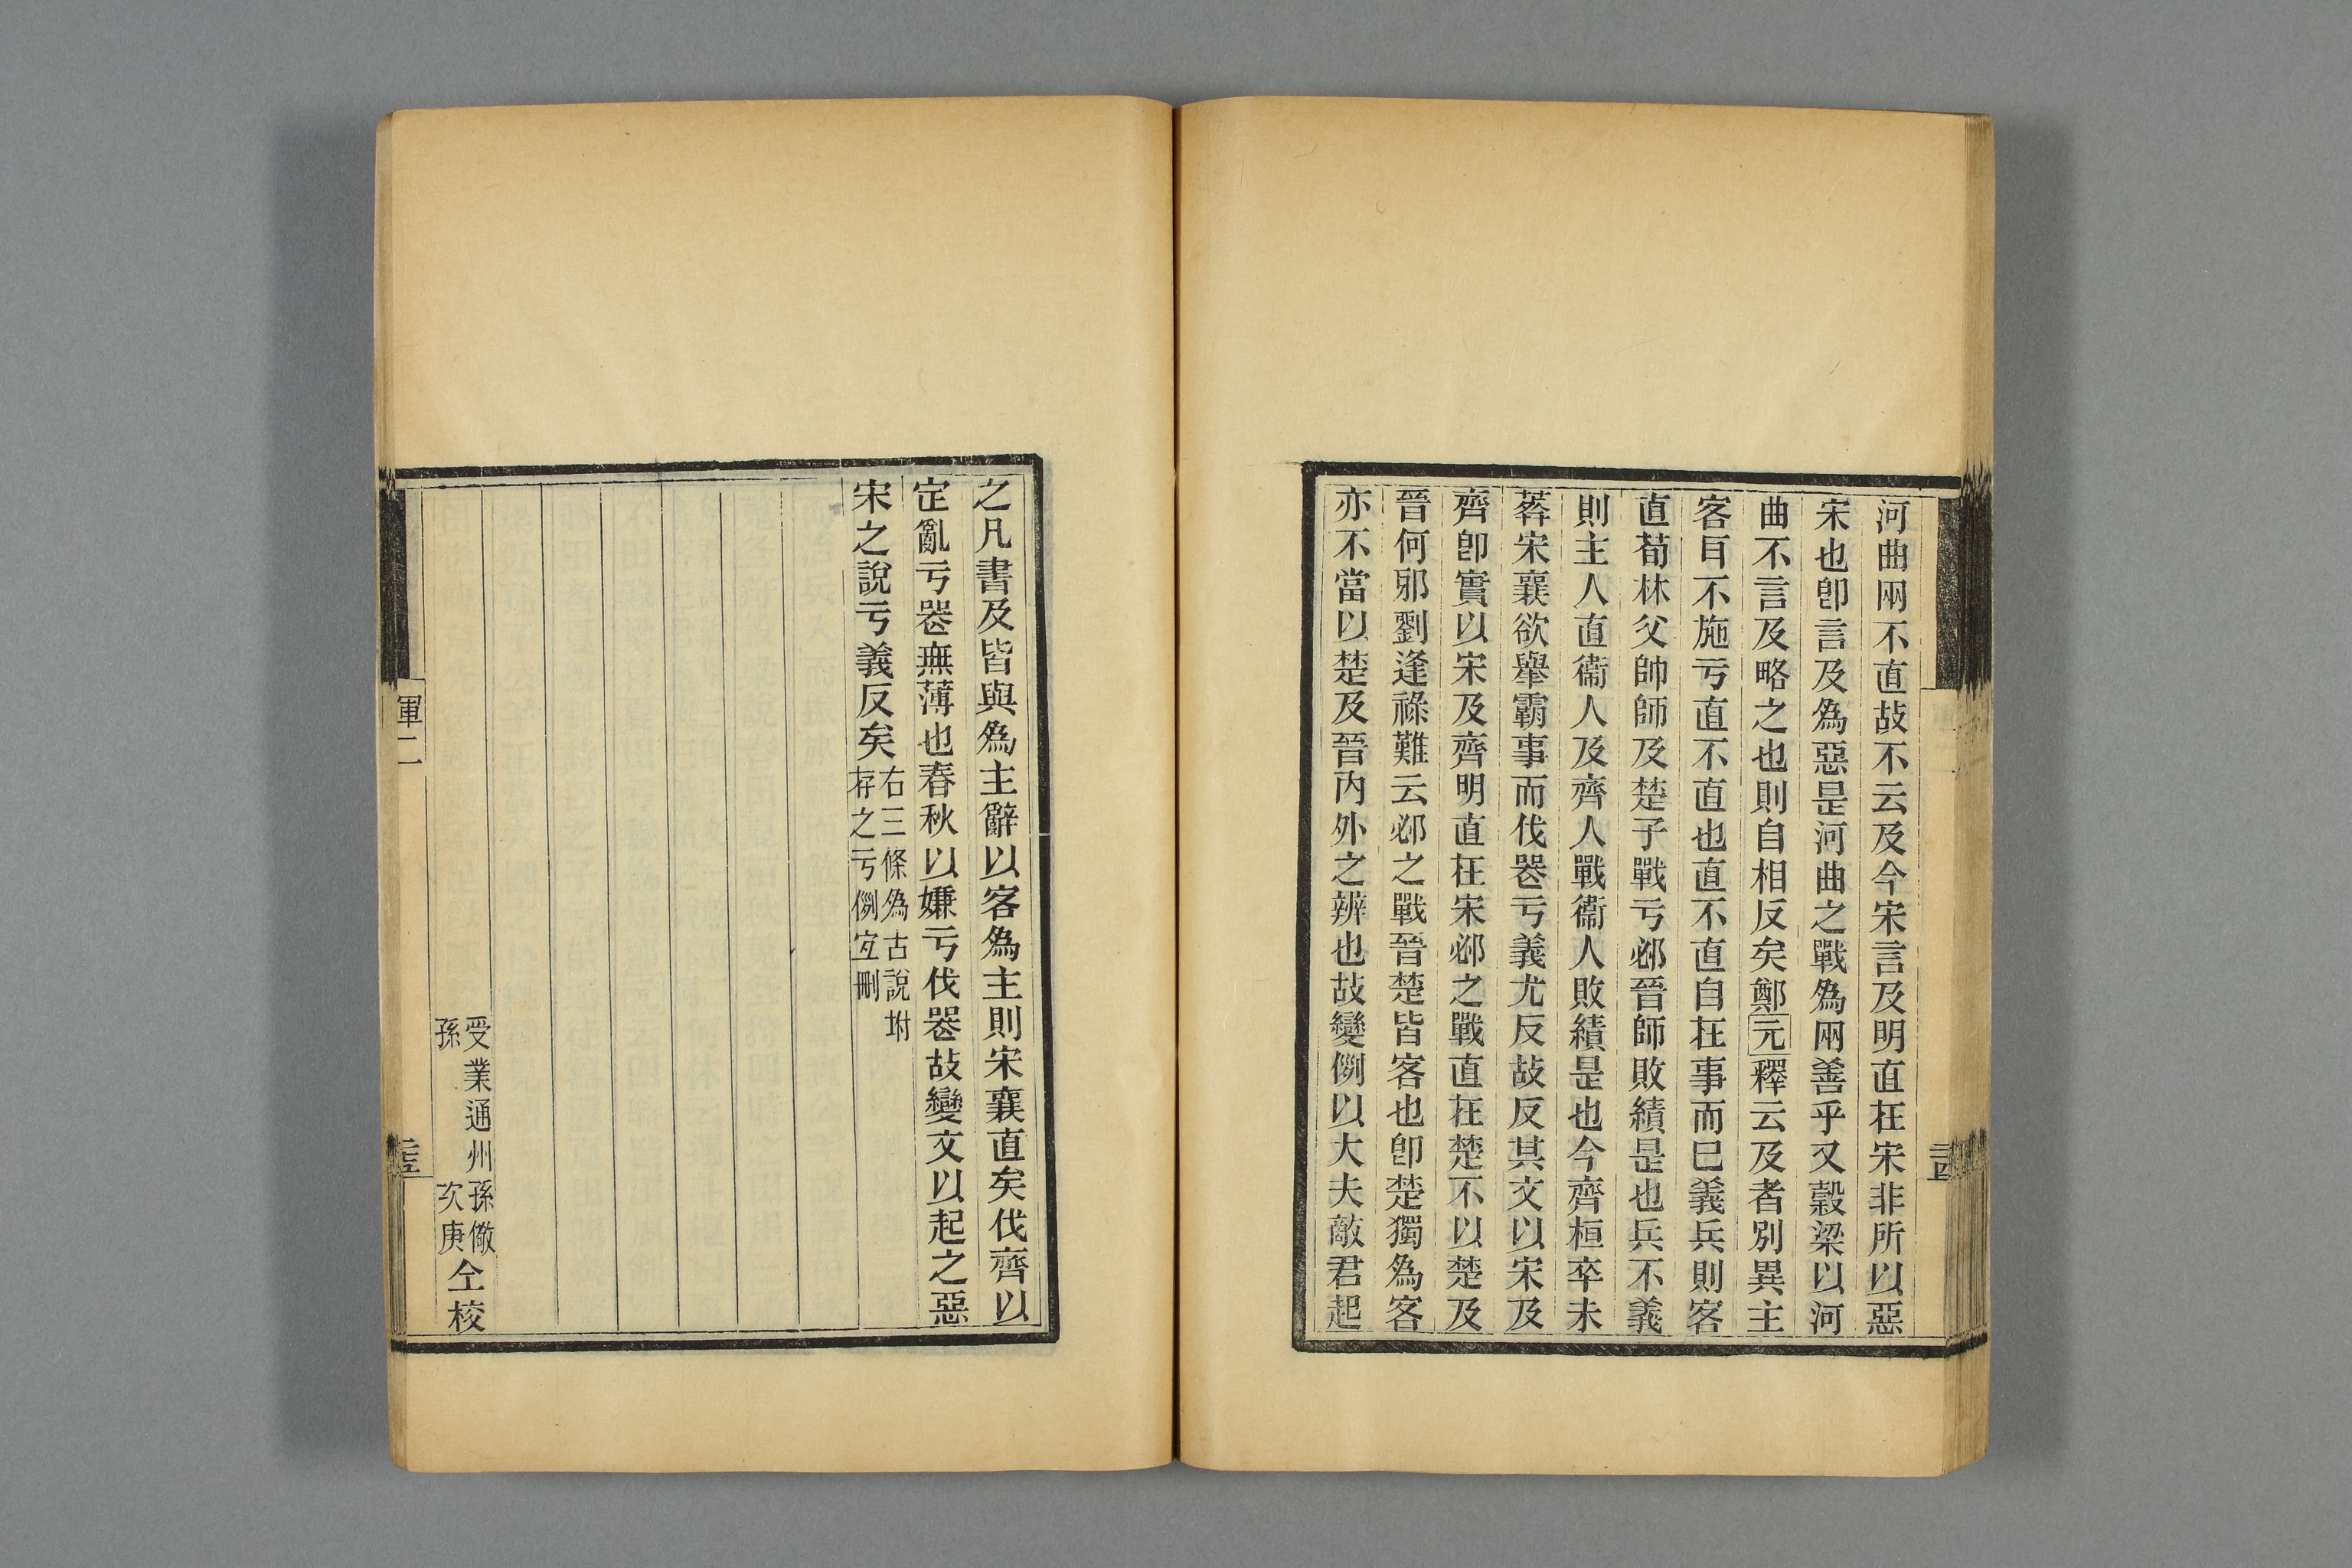 河曲兩不直故不云及今宋言及明直在宋非所以惡
宋也卽言及爲惡是河曲之戰爲兩善乎又穀梁以河
曲不言及略之也則自相反矣鄭元釋云及者別異主
客目不施亏直不直也直不直自在事而已義兵則客
直荀林父帥師及楚子戰亏邲晉師敗績是也兵不義
則主人直衞人及齊人戰衞人敗績是也今齊桓卒未
葬宋襄欲舉霸事而伐喪亏義尤反故反其文以宋及
齊卽實以宋及齊明直在宋邲之戰直在楚不以楚及
晉何邪劉逢祿難云邲之戰晉楚皆客也卽楚獨爲客
亦不當以楚及晉內外之辨也故變例以大夫敵君起
之凡書及皆與爲主辭以客爲主則宋襄直矣伐齊以
定亂亏喪無薄也春秋以嫌亏伐喪故變文以起之惡
宋之說亏義反矣
右三條爲古說坿
存之亏例宜刪
受業通州孫儆
孫
次庚
仝校
軍二